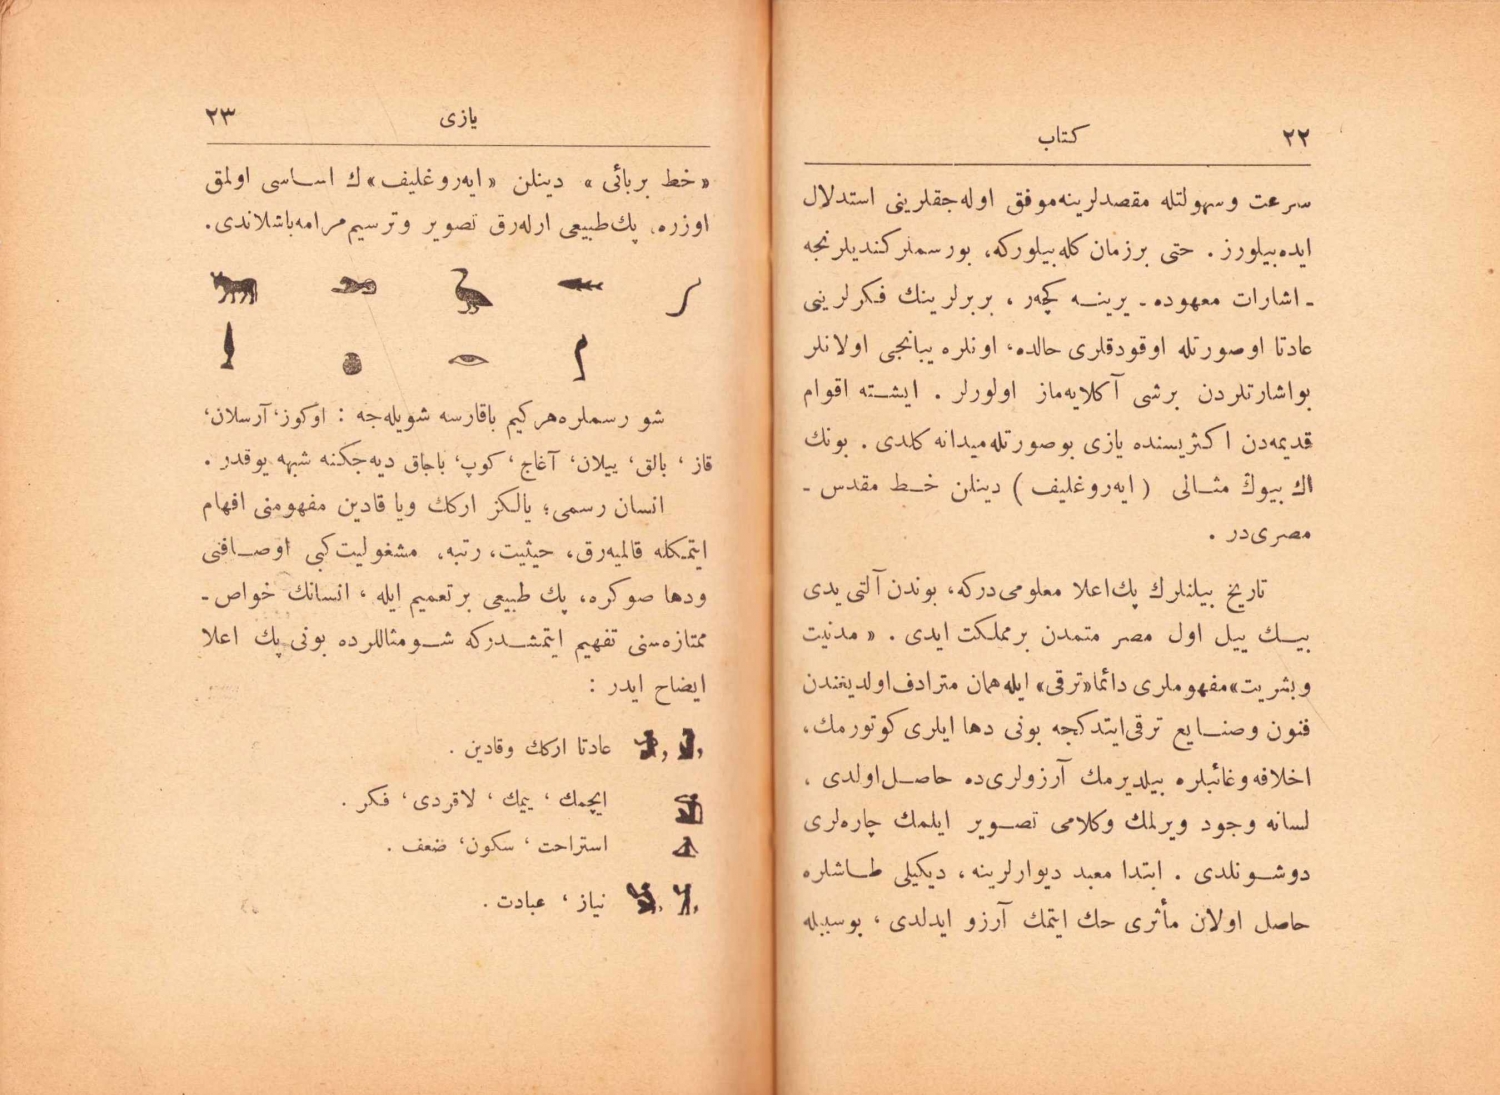 ٢٢
كتاب
سرعت وسهولتله مقصدلرينه موفق اوله جقلرينى استدلال
ايده بيلورز . حتى برزمان كله بيلوركه، بورسملر كنديلرنجه
ـ اشارات معهوده ـ يرينه كچه‌ر ، بربرلرينك فكرلرينى
عادتا اوصورتله اوقودقلرى حالده، اونلره يبانجى اولانلر
بواشارتلردن برشى آكلايه‌ماز اولورلر . ايشته اقوام
قديمه‌دن اكثريسنده يازى بوصورتله ميدانه كلدى . بونك
اك بيوك مثالى ( ايه‌روغليف ) دينلن خط مقدس ـ
مصرى‌در .
تاريخ بيلنلرك پك اعلا معلومى‌دركه، بوندن آلتى يدى
بيك ييل اول مصر متمدن برمملكت ايدى . « مدنيت
وبشريت» مفهوملرى دائما «ترقى» ايله همان مترادف اولديغندن
فنون وصنايع ترقى ايتدكجه بونى دها ايلرى كوتورمك،
اخلافه وغائبلره بيلديرمك آرزولرى‌ده حاصل اولدى .
لسانه وجود ويرلمك وكلامى تصوير ايلمك چاره‌لرى
دوشونلدى . ابتدا معبد ديوارلرينه ، ديكيلى طاشلره
حاصل اولان مأثرى حك ايتمك آرزو ايدلدى ، بوسببله
يازى
٢٣
« خط بربائى » دينلن « ايه‌روغليف »ك اساسى اولمق
اوزره، پك طبيعى ارله‌رق تصوير وترسيم مرامه باشلاندى.
شو رسملره هركيم باقارسه شويله‌جه : اوكوز، آرسلان،
قاز ، بالق، ييلان، آغاج ، كوپ، باجاق ديه‌جكنه شبهه يوقدر .
انسان رسمى؛ يالكز اركك ويا قادين مفهومنى افهام
ايتمكله قالميه‌رق، حيثيت، رتبه، مشغوليت كبى اوصافنى
ودها صوكره، پك طبيعى برتعميم ايله ، انسانك خواص ـ
ممتازه‌سنى تفهيم ايتمشدركه شو مثاللرده بونى پك اعلا
ايضاح ايدر :
، ، عادتا اركك وقادين .
ايچمك ، ييمك ، لاقردى ، فكر .
استراحت ، سكون، ضعف .
، ، نياز ، عبادت .